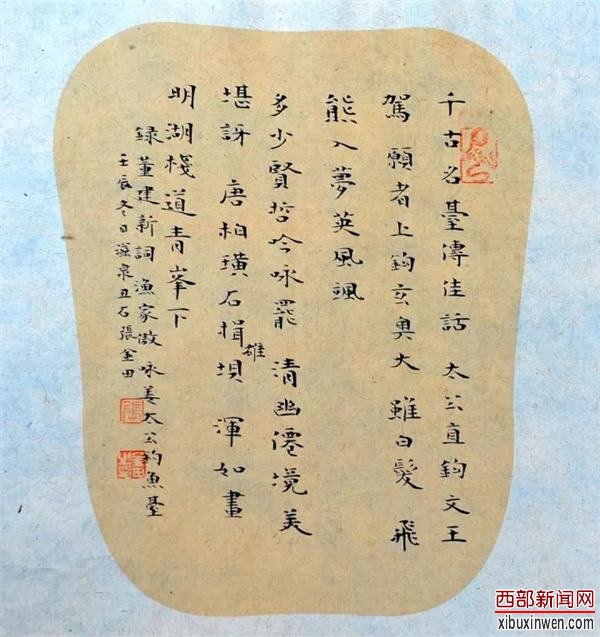 千古名臺傳佳話 太公直鈎文王
駕 願者上鈎玄奧大 雖白髮 飛
熊入夢英風颯
多少賢哲吟咏罷 清幽僊境美
堪訝 唐柏璜石揖雄壩 渾如畫
明湖棧道青峯下
録董建新詞漁家傲咏姜太公釣魚臺
壬辰冬日 泉丑石張金田
西部新闻网
xibuxinwen.com